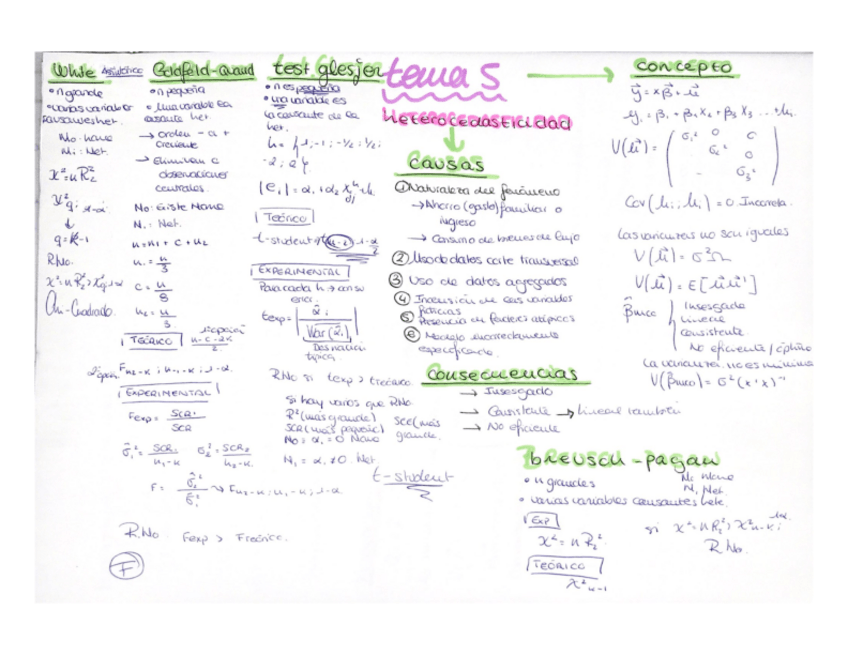 tema 5
Heterocedasticidad
White Asintótico
• n grande
• varias variables
causantes het.
H₀: homo
H₁: Het.
χ² = nR₂²
q = k-1
R H₀
Chi-Cuadrado
Goldfeld-Quand
• n pequeña
• Una variable es la
causante het.
→ Orden - a +
creciente
→ Eliminan c
observaciones
centrales.
H₀: Existe Homo
H₁: Het.
n = n₁ + c + n₂
n₁ = n/3
c = n/8
n₂ = n/3
TEÓRICO
1ª opción
n-c-2k / 2
2ª opción F n₂-k; n₁-k; 1-α
EXPERIMENTAL
Fexp = SCR₂ / SCR
σ̂₁² = SCR₁ / n₁-k σ̂₂² = SCR₂ / n₂-k
F = σ̂₂² / σ̂₁² → F n₂-k; n₁-k; 1-α
R H₀ Fexp > Fteórico.
F
test glesjer
• n es pequeña
• una variable es
la causante de la
het.
h = { 1; -1; -1/2; 1/2;
-2; 2 }
|e₁| = α₁ + α₂ X
Teórico
t-student
EXPERIMENTAL
Para cada h → consi
texp = | α̂₁ / √Var(α̂₁) |
Desviación
típica
R H₀ si texp > tteórico
si hay varios que RH₀
R² (más grande)
SCR (más pequeña) SCE (más
grande.
H₀: α₁ = 0 Homo
H₁ = α₁ ≠ 0 Het
t-student
Causas
① Naturaleza del fenómeno
→ Ahorro (gasto) familiar o
ingreso
→ Consumo de bienes de lujo
② Uso de datos corte transversal
③ Uso de datos agregados
④ Inclusión de las variables
⑤ Presencia de factores atípicos
⑥ Modelo incorrectamente
especificado.
Consecuencias
→ Insesgado
→ Consistente → Lineal también
→ No eficiente
Concepto
y⃗ = xβ⃗ + u⃗
yᵢ = β₁ + β₂X₂ + β₃X₃ ... + uᵢ
V(u⃗) = ( σ₁² 0 0
σ₂² 0
σ₃² )
Cov(uᵢ; uⱼ) = 0 Incorrela.
Las varianzas no son iguales
V(u⃗) = σ²Ω
V(u⃗) = E[u⃗u⃗']
β̂MCO
Insesgado
Lineal
consistente
No eficiente / óptimo
La varianza no es mínima
V(β̂MCO) = σ²(x'x)⁻¹
breusch-pagan
• n grandes
• varias variables causantes hete.
H₀ Homo
H₁ Het.
Exp
χ² = nR₂²
TEÓRICO
χ² k-1
R H₀